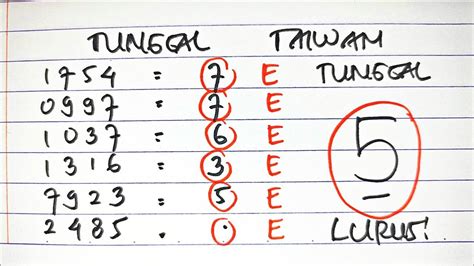 TUNGGAL TAIWAN
1754 = 7 E TUNGGAL
0997 = 7 E
1037 = 6 E 5
1316 = 3 E
7923 = 5 E
2485 . . E LURUS!